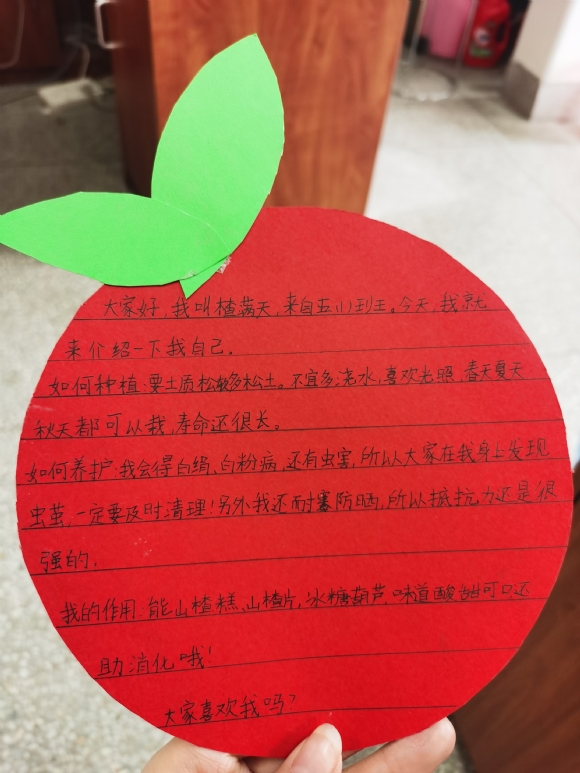 大家好,我叫楂满天,来自五(1)班。今天,我就
来介绍一下我自己.
如何种植:要土质松多松土。不宜多浇水,喜欢光照,春天夏天
秋天都可以栽,寿命还很长。
如何养护:我会得白绢,白粉病,还有虫害,所以大家在我身上发现
虫茧,一定要及时清理!另外我还耐寒防晒,所以抵抗力还是很
强的.
我的作用:能山楂糕,山楂片,冰糖葫芦,味道酸甜可口还
助消化哦!
大家喜欢我吗?